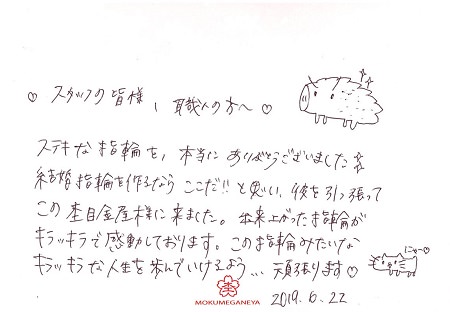 ♡ スタッフの皆様、職人の方へ ♡
ステキな指輪を、本当にありがとうございました
結婚指輪を作るなら ここだ!! と思い、彼を引っ張って
この 杢目金屋様に来ました。出来上がった指輪が
キラッキラで感動しております。この指輪みたいな
キラッキラな人生を歩んでいけるよう… 頑張ります♡
にゃ〜♡
MOKUMEGANEYA
2019. 6. 22